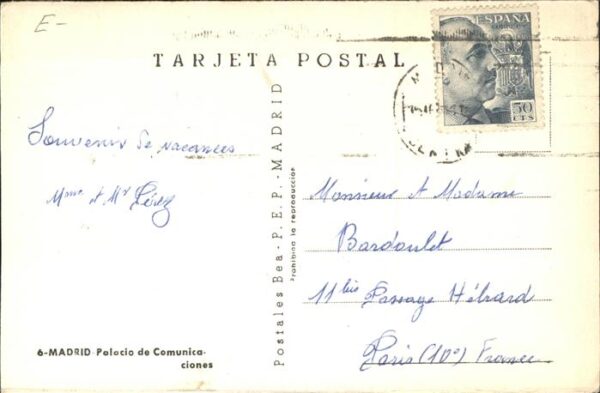 E-
TARJETA POSTAL
ESPAÑA
CORREOS
50
CTS
Souvenir de vacances
Mme et Mr
6-MADRID Palacio de Comunica-
ciones
Postales Bea.-P.E.P.-MADRID
Prohibida la reproduccion
Monsieur et Madame
Bardoulet
11bis Passage Hébrard
Paris (10e) France